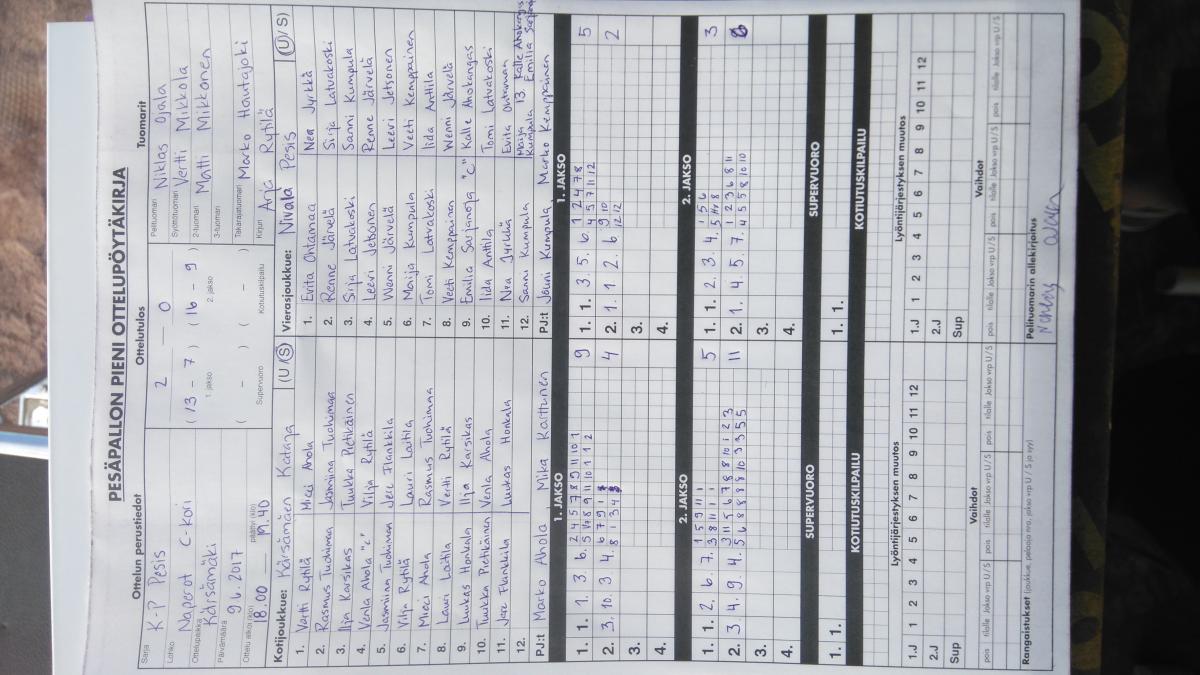 PESÄPALLON PIENI OTTELUPÖYTÄKIRJA
Ottelun perustiedot Ottelutulos Tuomarit
Sarja K-P Pesis
Lohko Naperot C-kori
Ottelupaikka Kärsämäki
Päivämäärä 9.6.2017
Ottelu alkoi (klo) 18.00 päättyi (klo) 19.40
2 — 0
( 13 - 7 ) ( 16 - 9 )
1. jakso 2. jakso
( - ) ( - )
Supervuoro Kotiutuskilpailu
Pelituomari Niklas Ojala
Syöttötuomari Vertti Mikkola
2-tuomari Matti Mikkonen
3-tuomari
Takarajatuomari Marko Hautajoki
Kirjuri Arja Rytilä
Kotijoukkue: Kärsämäen Kataja (U/S)
1. Vertti Rytilä Mici Ahola
2. Rasmus Tuohimaa Jasmiina Tuohimaa
3. Ilja Karsikas Tuukka Pietikäinen
4. Venla Ahola "C" Vilja Rytilä
5. Jasmiina Tuohimaa Jere Flankkila
6. Vilja Rytilä Lauri Laitila
7. Mici Ahola Rasmus Tuohimaa
8. Lauri Laitila Vertti Rytilä
9. Luukas Honkala Ilja Karsikas
10. Tuukka Pietikäinen Venla Ahola
11. Jere Flankkila Luukas Honkala
12.
PJ:t Marko Ahola Mika Karttunen
Vierasjoukkue: Nivala Pesis (U/S)
1. Evita Ohtamaa Nea Jyrkkä
2. Renne Järvelä Sirja Latvakoski
3. Sirja Latvakoski Sanni Kumpula
4. Leevi Jetsonen Renne Järvelä
5. Wenni Järvelä Leevi Jetsonen
6. Maija Kumpula Veeti Kemppainen
7. Tomi Latvakoski Iida Anttila
8. Veeti Kemppainen Wenni Järvelä
9. Emilia Sarjanoja "C" Kalle Ahokangas
10. Iida Anttila Tomi Latvakoski
11. Nea Jyrkkä Evita Ohtamaa
12. Sanni Kumpula Maija Kumpula 13. Kalle Ahokangas
PJ:t Jouni Kumpula, Marko Kemppainen
1. JAKSO 1. JAKSO
1. 1. 1. 3. 6. 9
2. 3. 10. 3. 4. 4
3.
4.
1. 1. 3. 5. 6. 5
2. 1. 1. 2. 6 2
3.
4.
2. JAKSO 2. JAKSO
1. 1. 2. 6. 7. 5
2. 3. 4. 9. 4. 11
3.
4.
1. 1. 2. 3. 4. 3
2. 1. 4. 5. 7. 6
3.
4.
SUPERVUORO SUPERVUORO
1. 1. 1. 1.
KOTIUTUSKILPAILU KOTIUTUSKILPAILU
Lyöntijärjestyksen muutos Lyöntijärjestyksen muutos
1.J 1 2 3 4 5 6 7 8 9 10 11 12
2.J
Sup
1.J 1 2 3 4 5 6 7 8 9 10 11 12
2.J
Sup
Vaihdot Vaihdot
pois tilalle Jakso vrp U/S pois tilalle Jakso vrp U/S pois tilalle Jakso vrp U/S
pois tilalle Jakso vrp U/S pois tilalle Jakso vrp U/S
Rangaistukset (joukkue, pelaaja nro, jakso vrp U / S ja syy)
Pelituomarin allekirjoitus